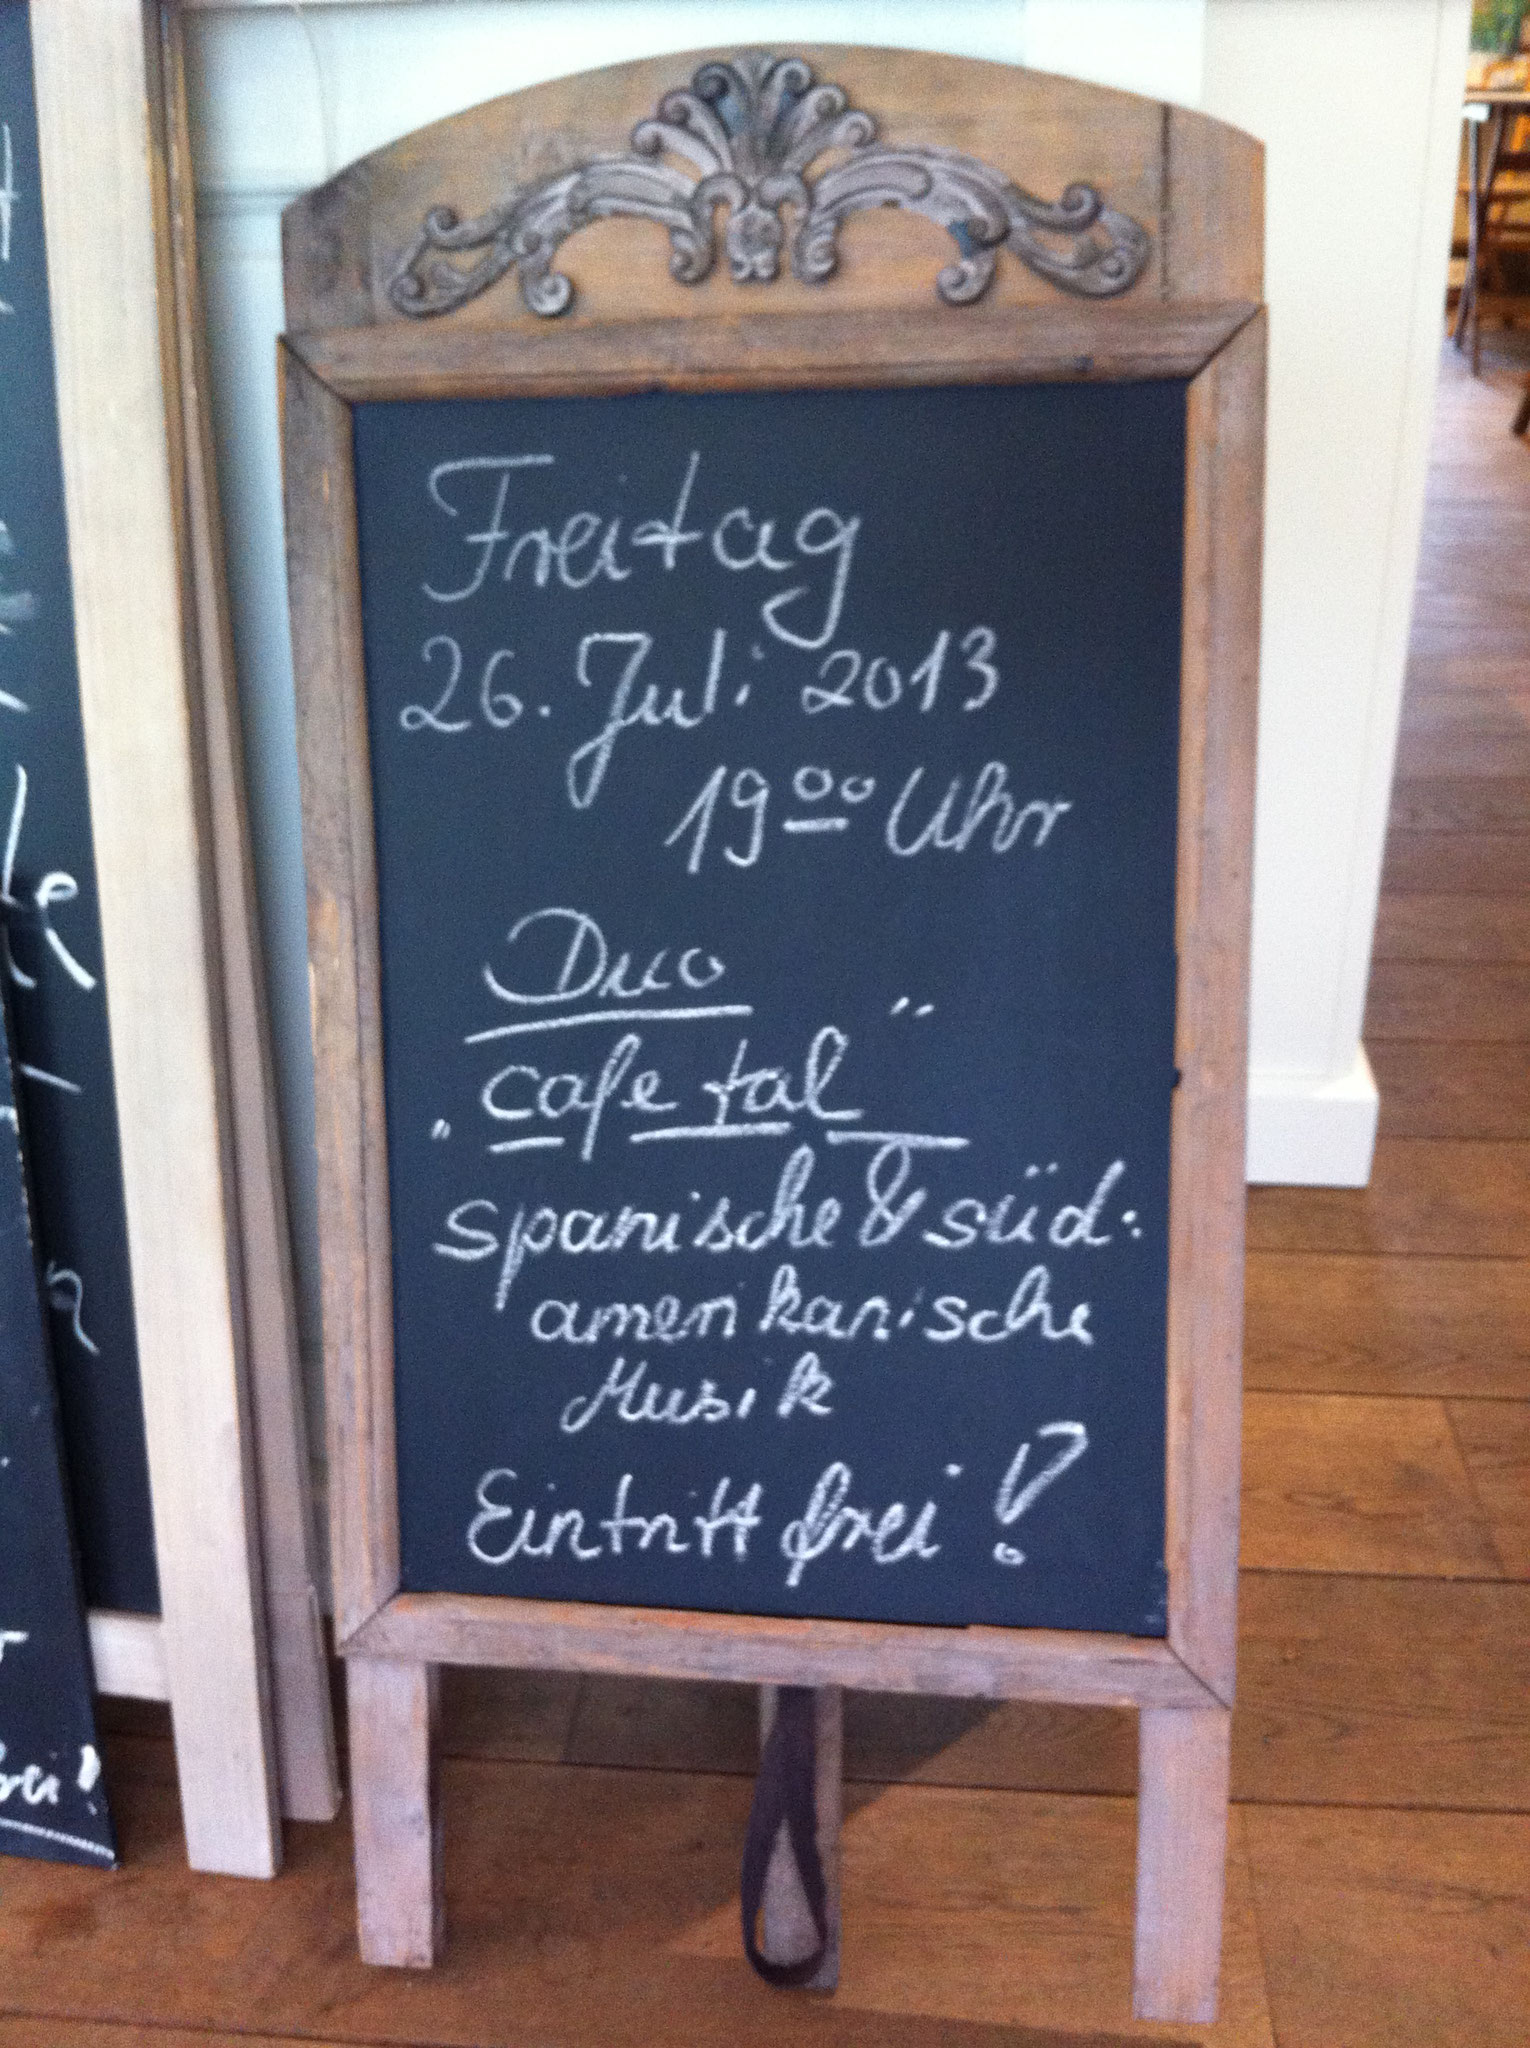 Freitag
26. Juli 2013
19 00 Uhr
Duo
„cafe tal“
spanische & süd-
amerikanische
Musik
Eintritt frei!